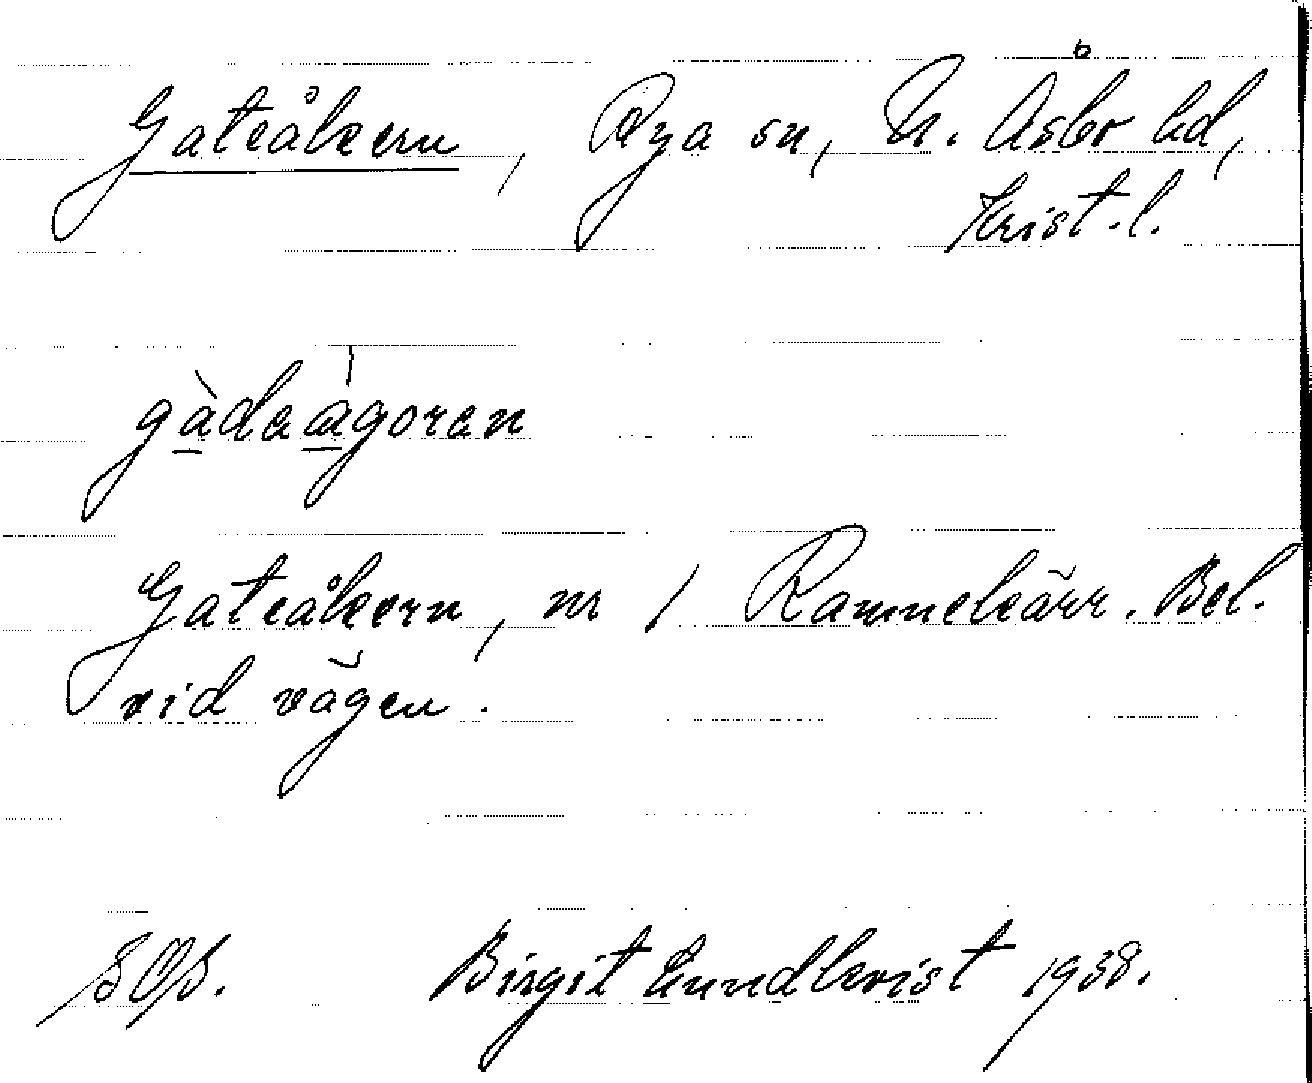 Gateåkern, Rya sn, N. Åsbo hd,
Krist. l.
gàdaågoren
Gateåkern, nr 1 Rammekärr. Bel.
vid vägen.
Birgit Lundkvist 1938.